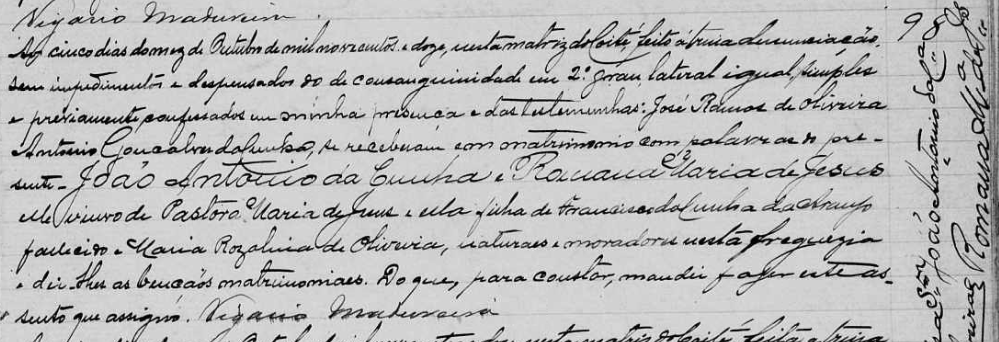 Vigario Madureira.
Aos cinco dias do mez de Outubro de mil novecentos e doze, nesta matriz do Coité, feito á trina denunciação,
sem impedimentos e despensados do de consanguinidade em 2º gráu lateral igual, simples
e préviamente confessados em minha presença e das testemunhas: José Ramos de Oliveira
Antonio Gonçalves da Cunha, se receberam em matrimonio com palavras do pre-
sente - João Antonio da Cunha e Romana Maria de Jesus
elle viuvo de Pastora Maria de Jesus e ella filha de Francisco da Cunha de Araujo
fallecido e Maria Rozalina de Oliveira, naturaes e moradores nesta freguezia
e dei-lhes as bençãos matrimoniaes. Do que, para constar, mandei fazer este as-
sento que assigno. Vigario Madureira
nesta matriz do Coité, feita a trina
9
João Antonio da Ca
Romana M.a de Js